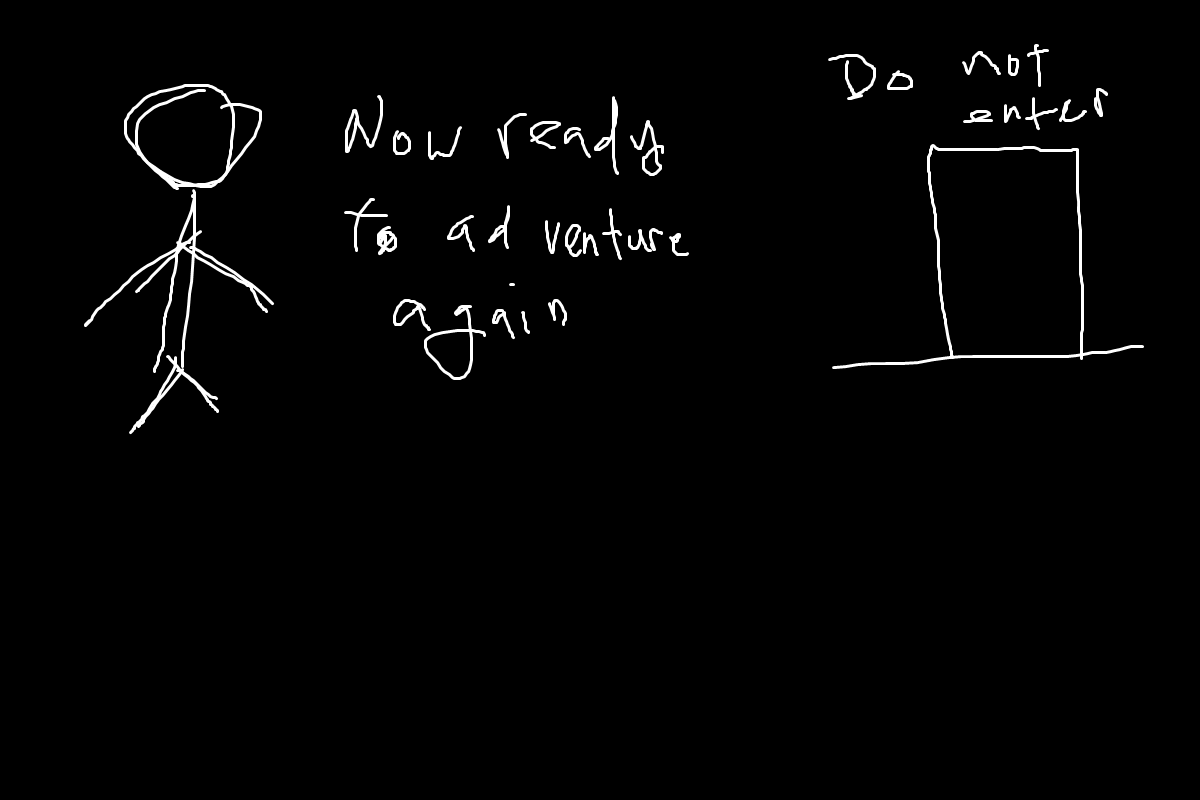 Now ready
To adventure
again
Do not
enter